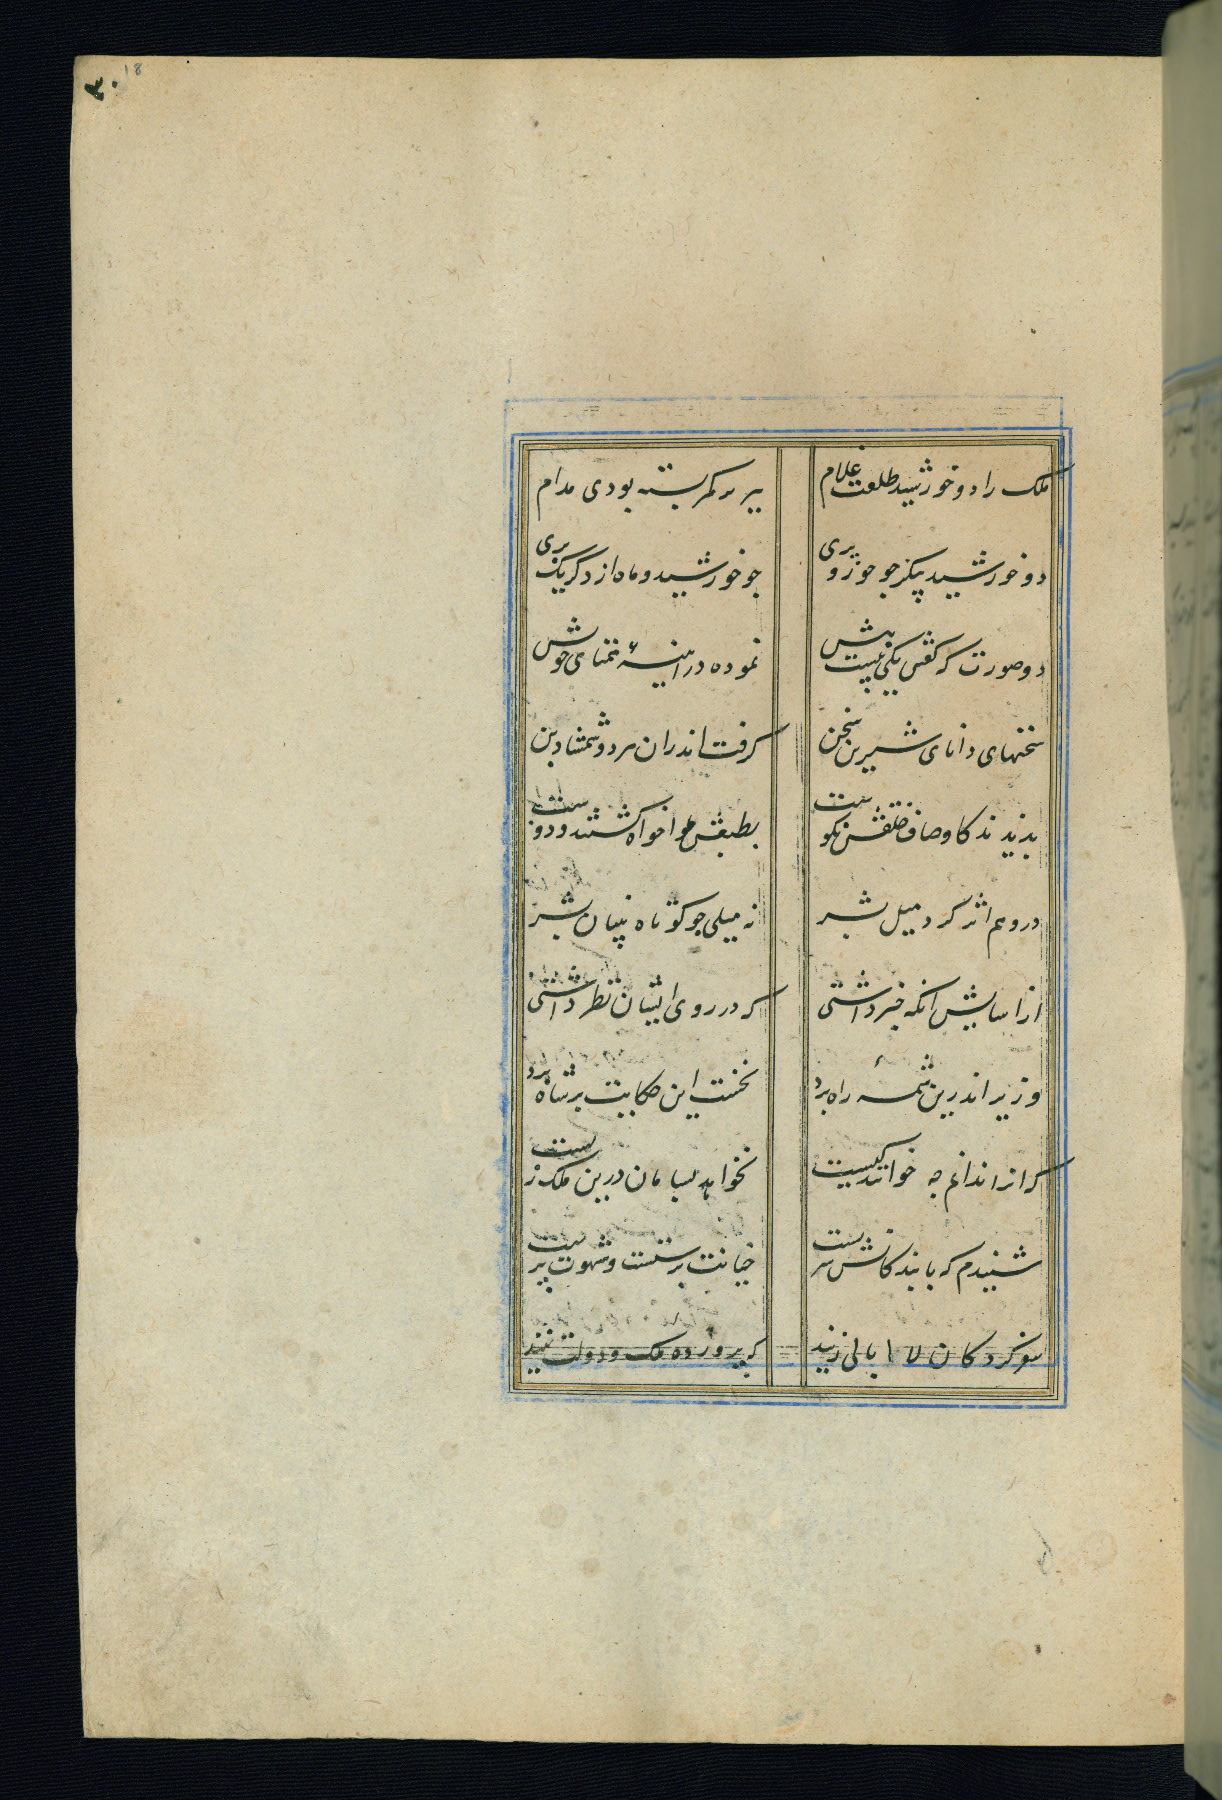 ۳۰ 18
ملک را دو خورشید طلعت غلام بسر بر کمر بسته بودی مدام
دو خورشید پیکر جو حور و پری جو خورشید و ماه از دکر یک بری
دو صورت که کفتی یکی نیست بیش نموده در اینهٔ همتای خویش
سخنهای دانای شیرین سخن کرفت اندران هر دو شمشاد بن
بدیدند کاوصاف خلقش نکوست بطبعش هوا خواه کشتند و دوست
درو هم اثر کرد میل بشر نه میلی جو کوتاه بینان بشر
از اسایش انکه خبر داشتی که در روی ایشان نظر داشتی
وزیر اندرین شمهٔ راه برد بخبث این حکایت بر شاه برد
که انرا ندانم جه خوانند کیست نخواهد بسامان درین ملک زیست
شنیدم که با بندکانش سرست خیانت پرستست و شهوت پرست
سفر کردکان لا ابالی زیند که پرورده ملک و دولت نیند